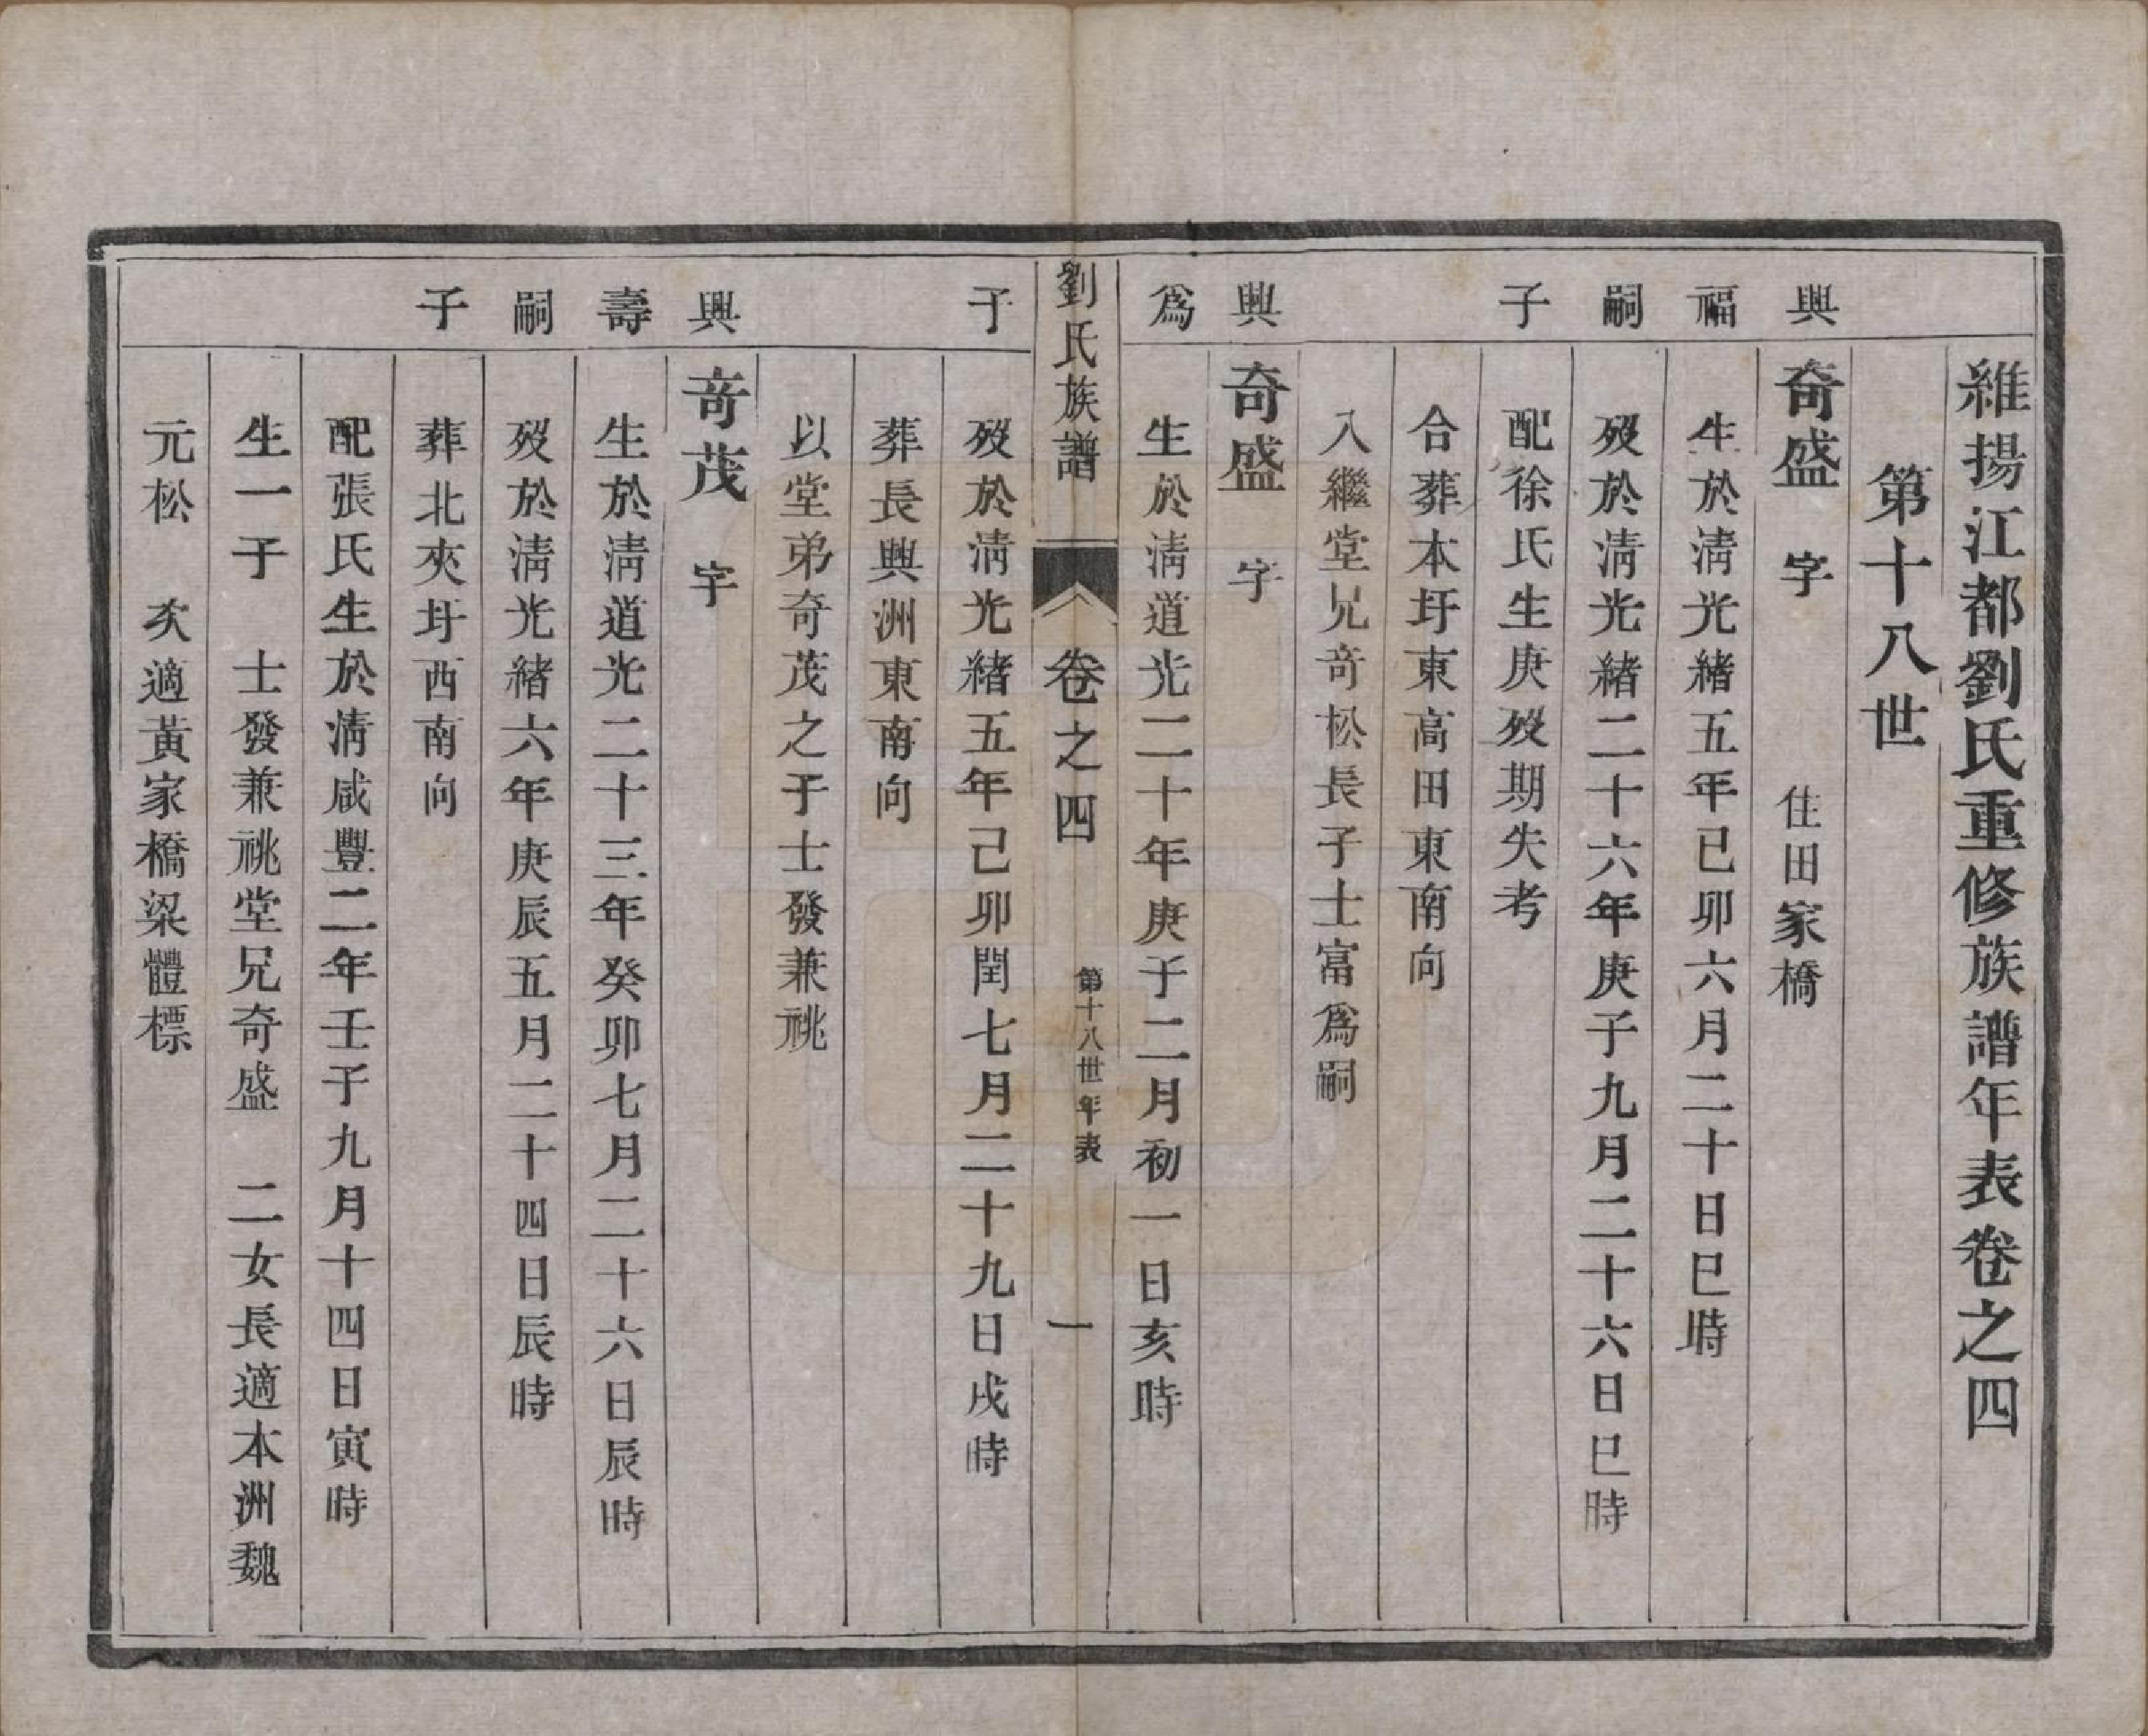 維揚江都劉氏重修族譜年表卷之四
第十八世
興福嗣子
奇盛 字 住田家橋
生於清光緒五年己卯六月二十日巳時
歿於清光緒二十六年庚子九月二十六日巳時
配徐氏生庚歿期失考
合葬本圩東高田東南向
入繼堂兄奇松長子士富為嗣
興為子
奇盛 字
生於清道光二十年庚子二月初一日亥時
劉氏族譜 卷之四 第十八世年表 一
歿於清光緒五年己卯閏七月二十九日戌時
葬長興洲東南向
以堂弟奇茂之子士發兼祧
興壽嗣子
奇茂 字
生於清道光二十三年癸卯七月二十六日辰時
歿於清光緒六年庚辰五月二十四日辰時
葬北夾圩西南向
配張氏生於清咸豐二年壬子九月十四日寅時
生一子 士發兼祧堂兄奇盛 二女長適本洲魏
元松 次適黃家橋梁體標